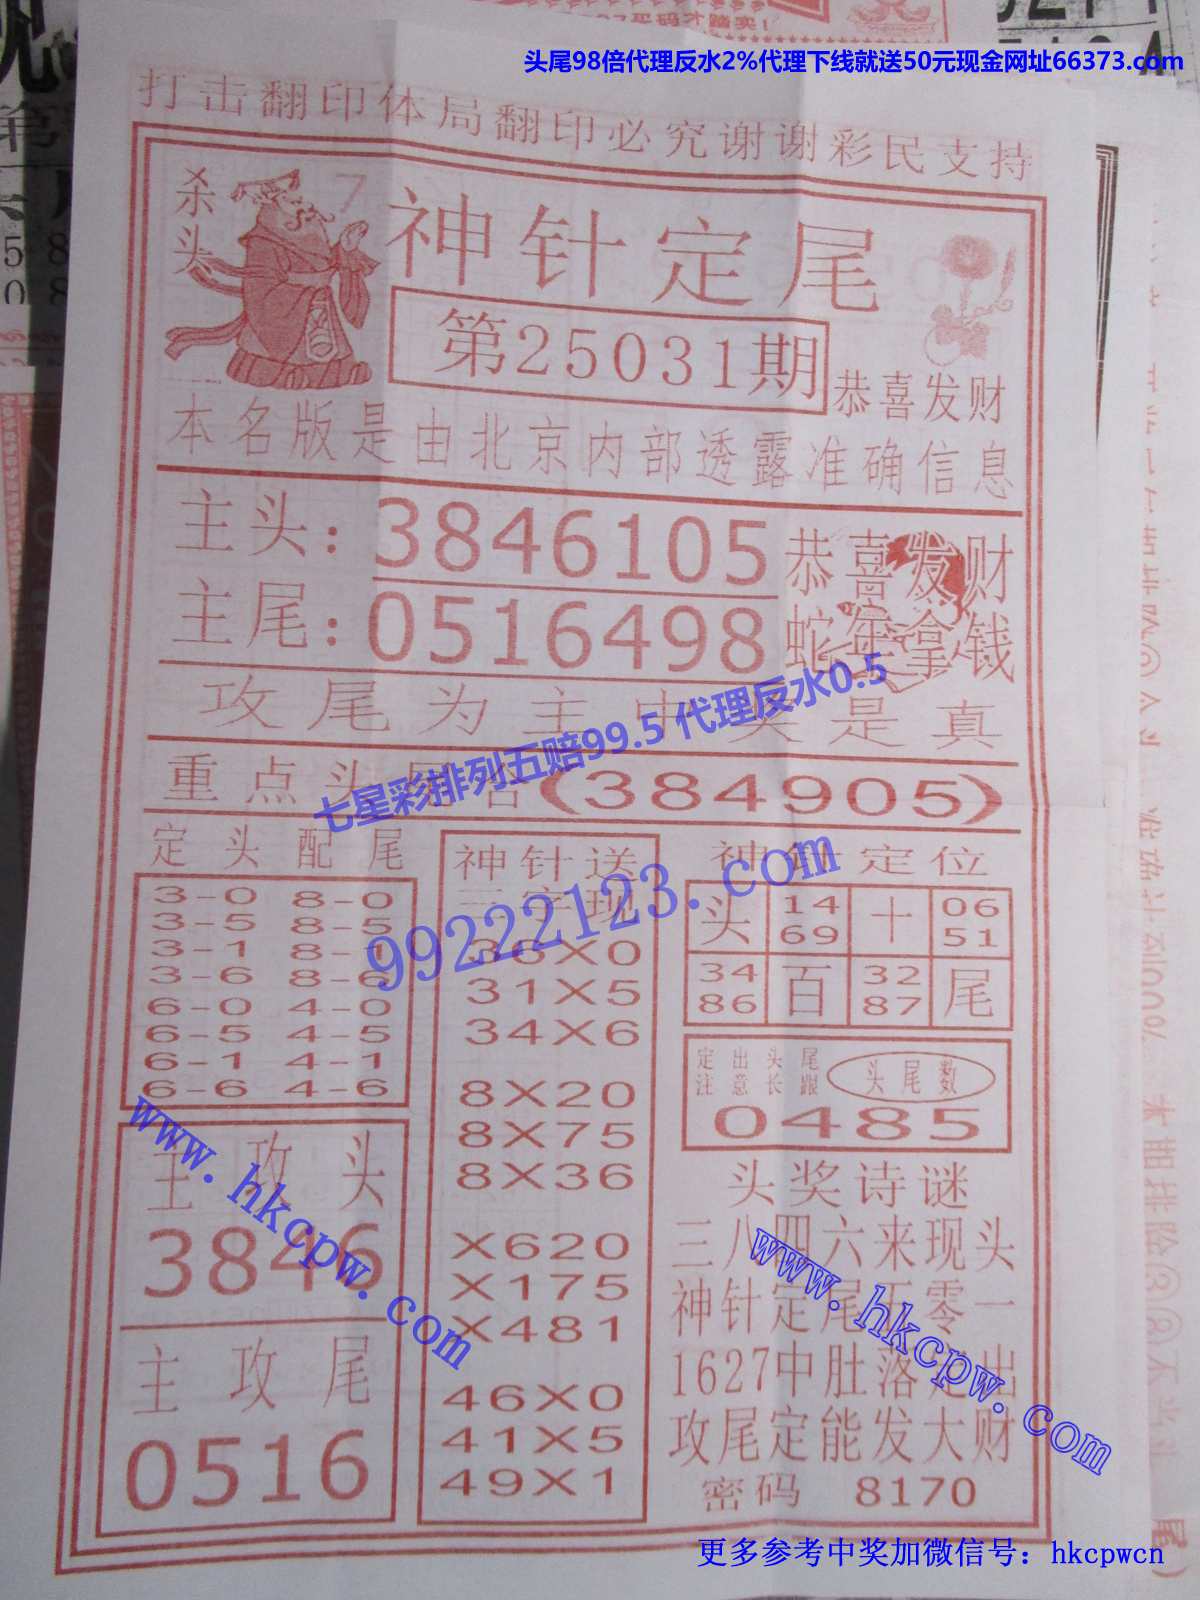 头尾98倍代理反水2%代理下线就送50元现金网址66373.com
打击翻印体局翻印必究谢谢彩民支持
杀头
7
神针定尾
第25031期
恭喜发财
本名版是由北京内部透露准确信息
主头：3846105
主尾：0516498
恭喜发财
蛇年拿钱
攻尾为主中奖是真
七星彩排列五赔99.5 代理反水0.5
重点头尾合(384905)
99222123.com
定头配尾
3-0 8-0
3-5 8-5
3-1 8-1
3-6 8-6
6-0 4-0
6-5 4-5
6-1 4-1
6-6 4-6
主攻头
3846
主攻尾
0516
神针送
三字现
36X0
31X5
34X6
8X20
8X75
8X36
X620
X175
X481
46X0
41X5
49X1
神针定位
头 14 69 十 06 51
34 86 百 32 87 尾
定出头尾
注意长跟
头尾数
0485
头奖诗谜
三八四六来现头
神针定尾五零一
1627中肚落定出
攻尾定能发大财
密码 8170
www.hkcpw.com
www.hkcpw.com
更多参考中奖加微信号：hkcpwcn